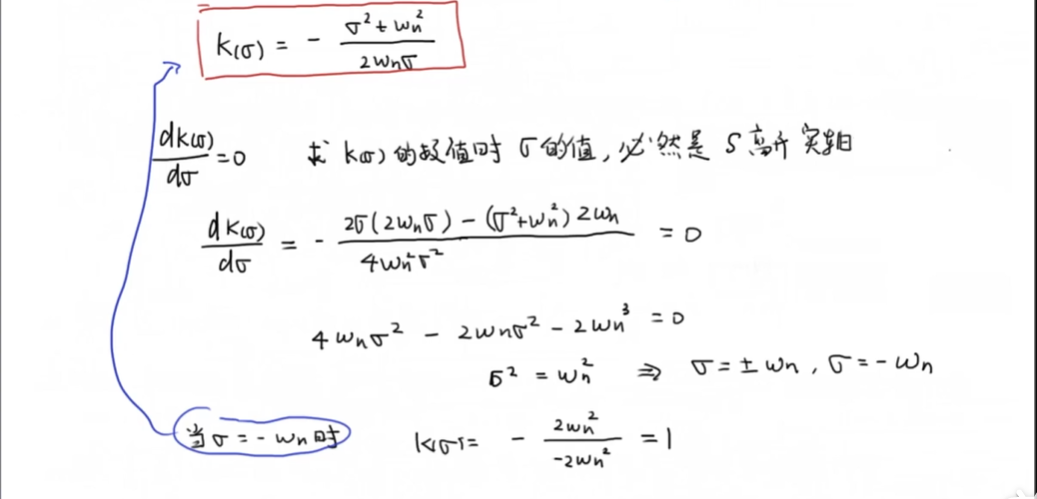 K(σ) = - (σ² + ωn²) / (2ωnσ)
dk(σ)/dσ = 0 求 k(σ) 的极值时 σ 的值, 必然是 S 离开实轴
dK(σ)/dσ = - (2σ(2ωnσ) - (σ²+ωn²)2ωn) / (4ωn²σ²) = 0
4ωnσ² - 2ωnσ² - 2ωn³ = 0
σ² = ωn² ⇒ σ = ± ωn, σ = - ωn
当 σ = - ωn 时 K(σ) = - 2ωn² / -2ωn² = 1